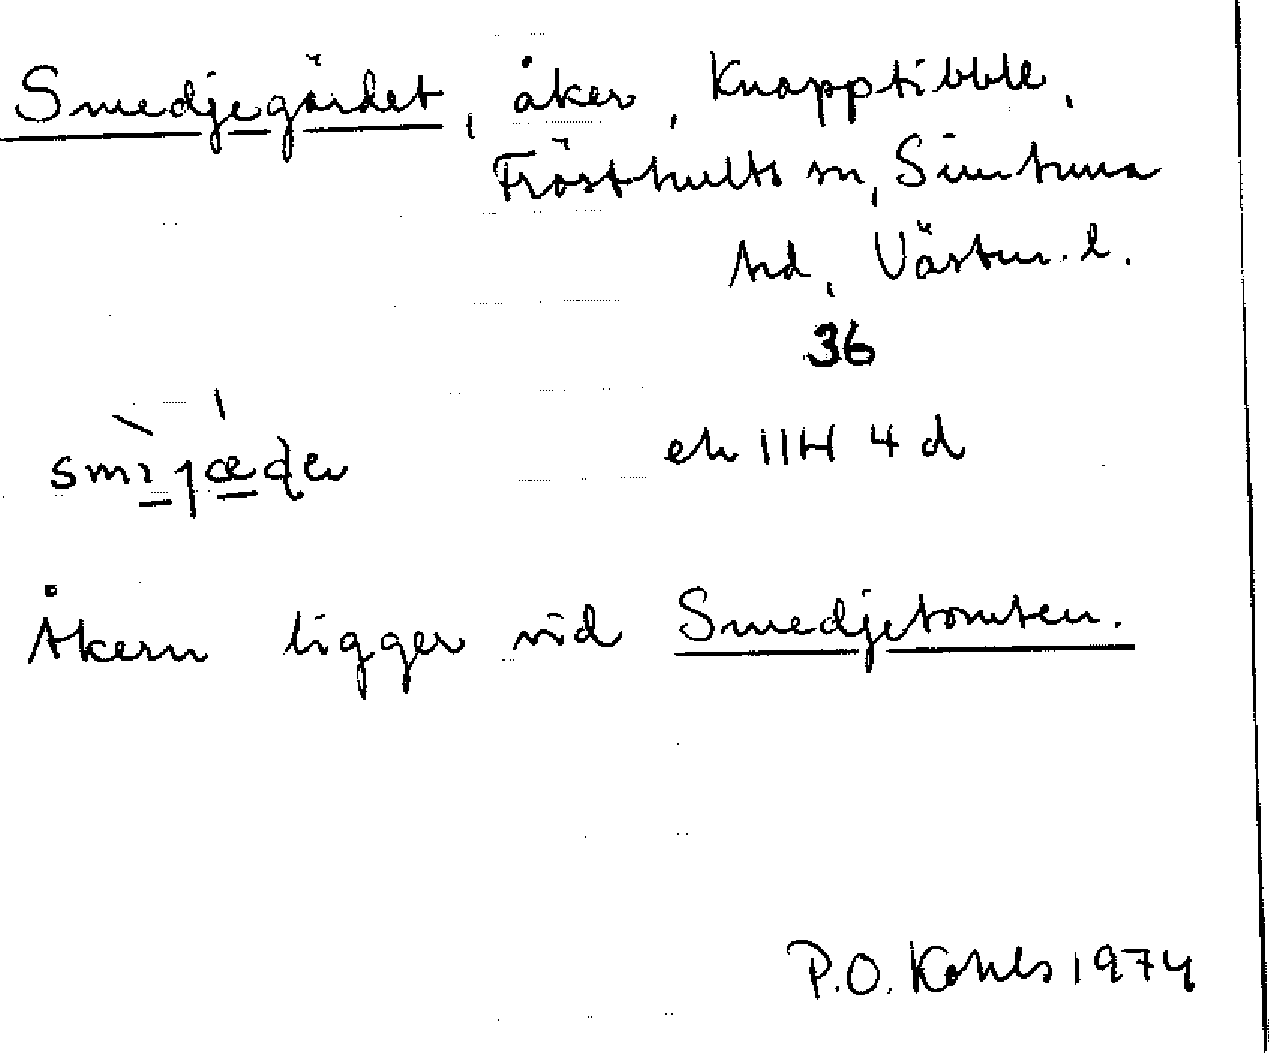 Smedjegärdet, åker, Knapptibble,
Frösthults sn, Simtuna
hd, Västm. l.
36
ek 11H 4 d
Åkern ligger vid Smedjetomten.
P.O. 1974